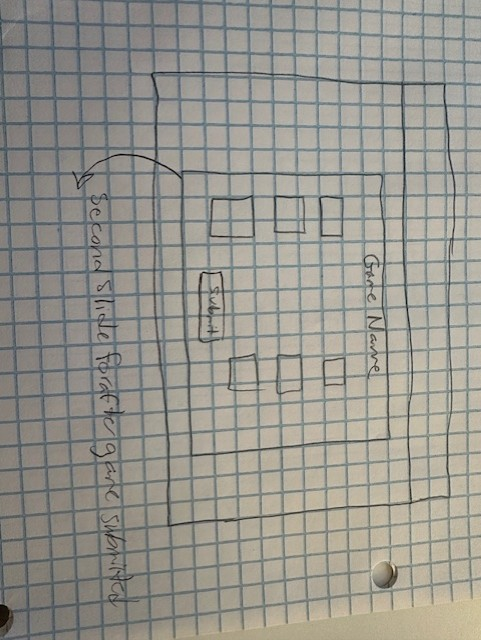 Game Name
Submit
Second Slide for after game submitted